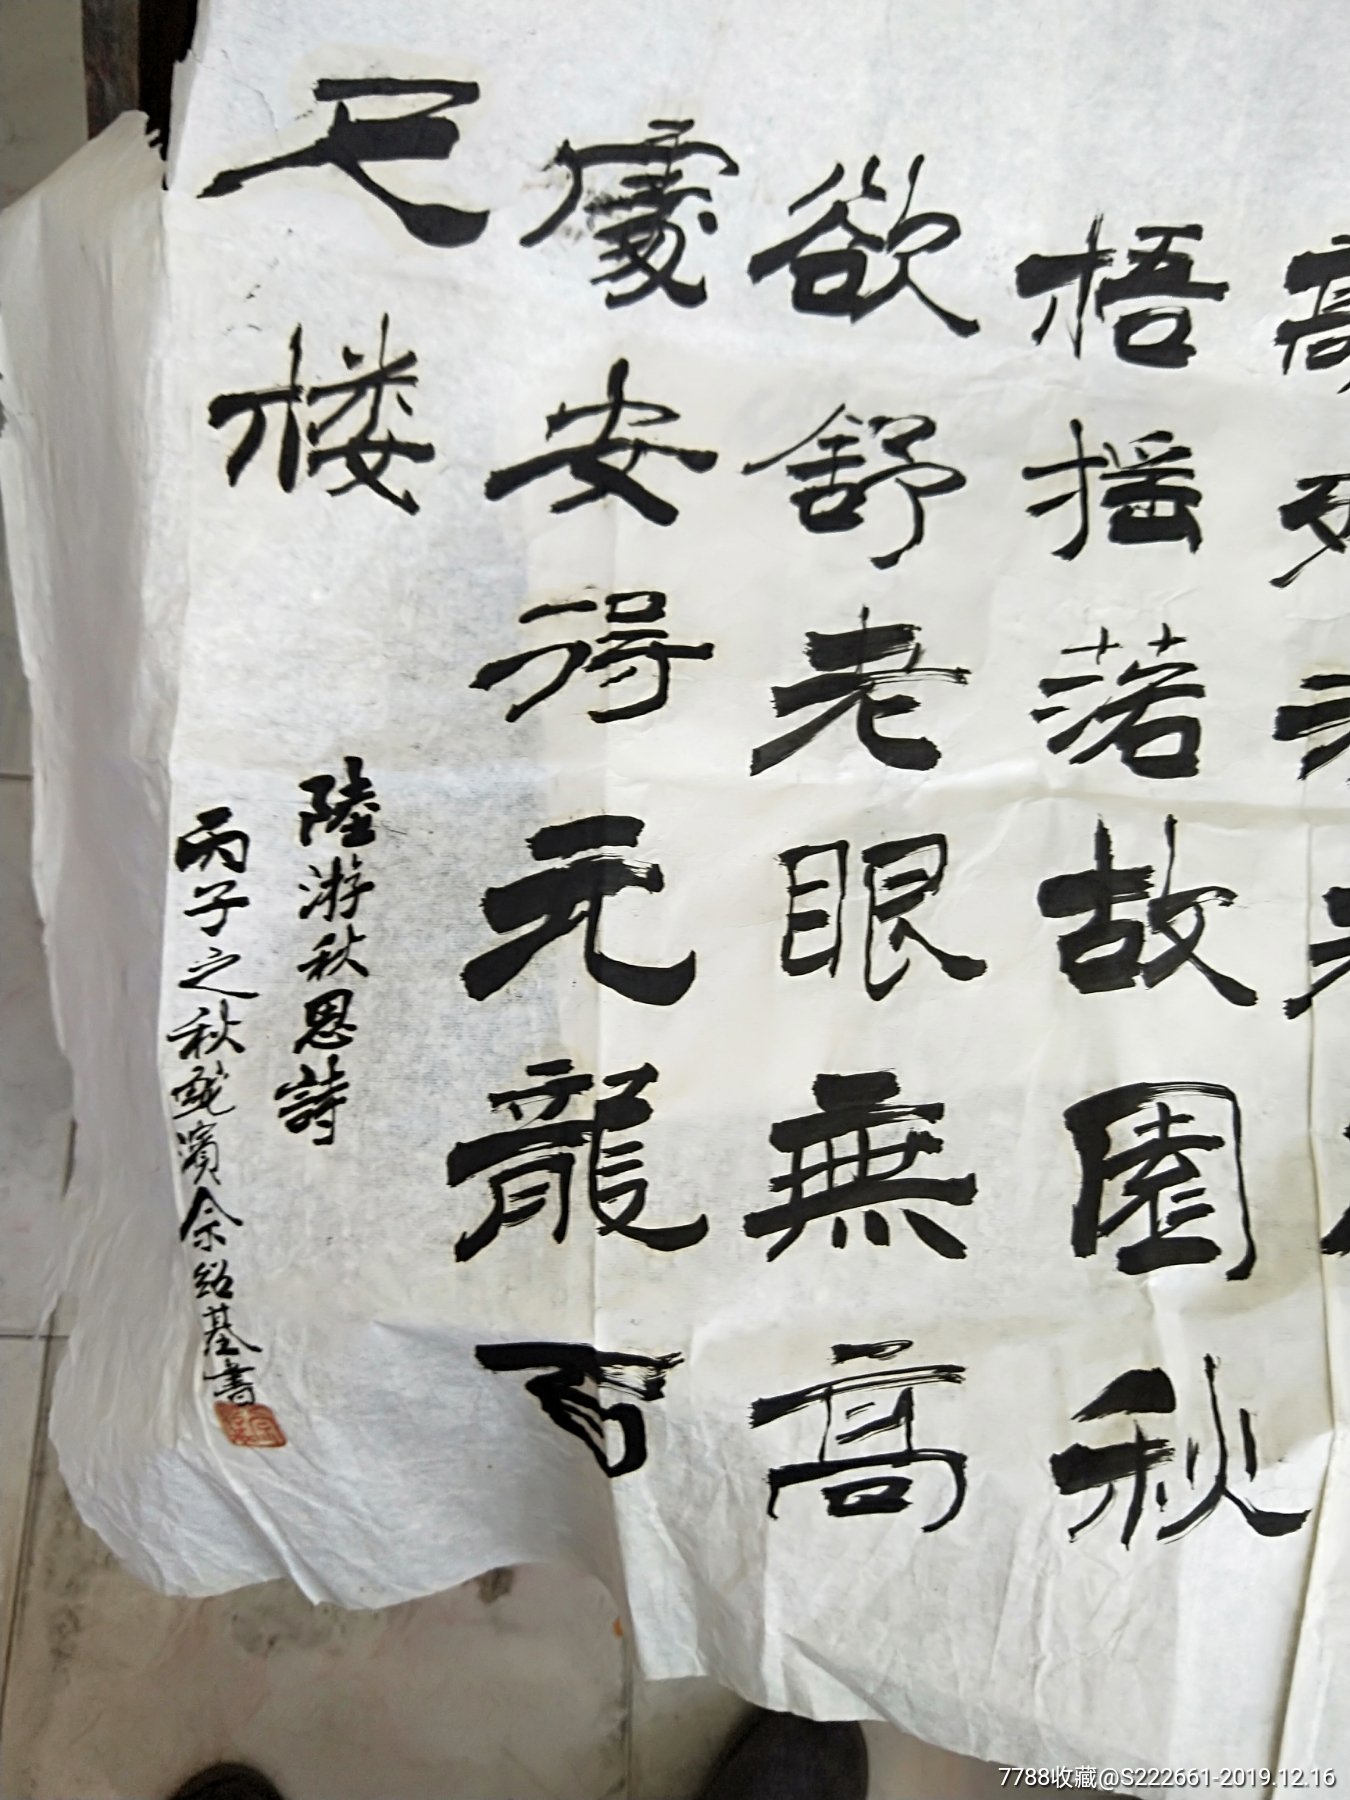 梧摇落故園秋
欲舒老眼無高
處安得元龍百
尺楼
陸游秋思詩
丙子之秋鮀濱佘绍基書
7788收藏@S222661-2019.12.16